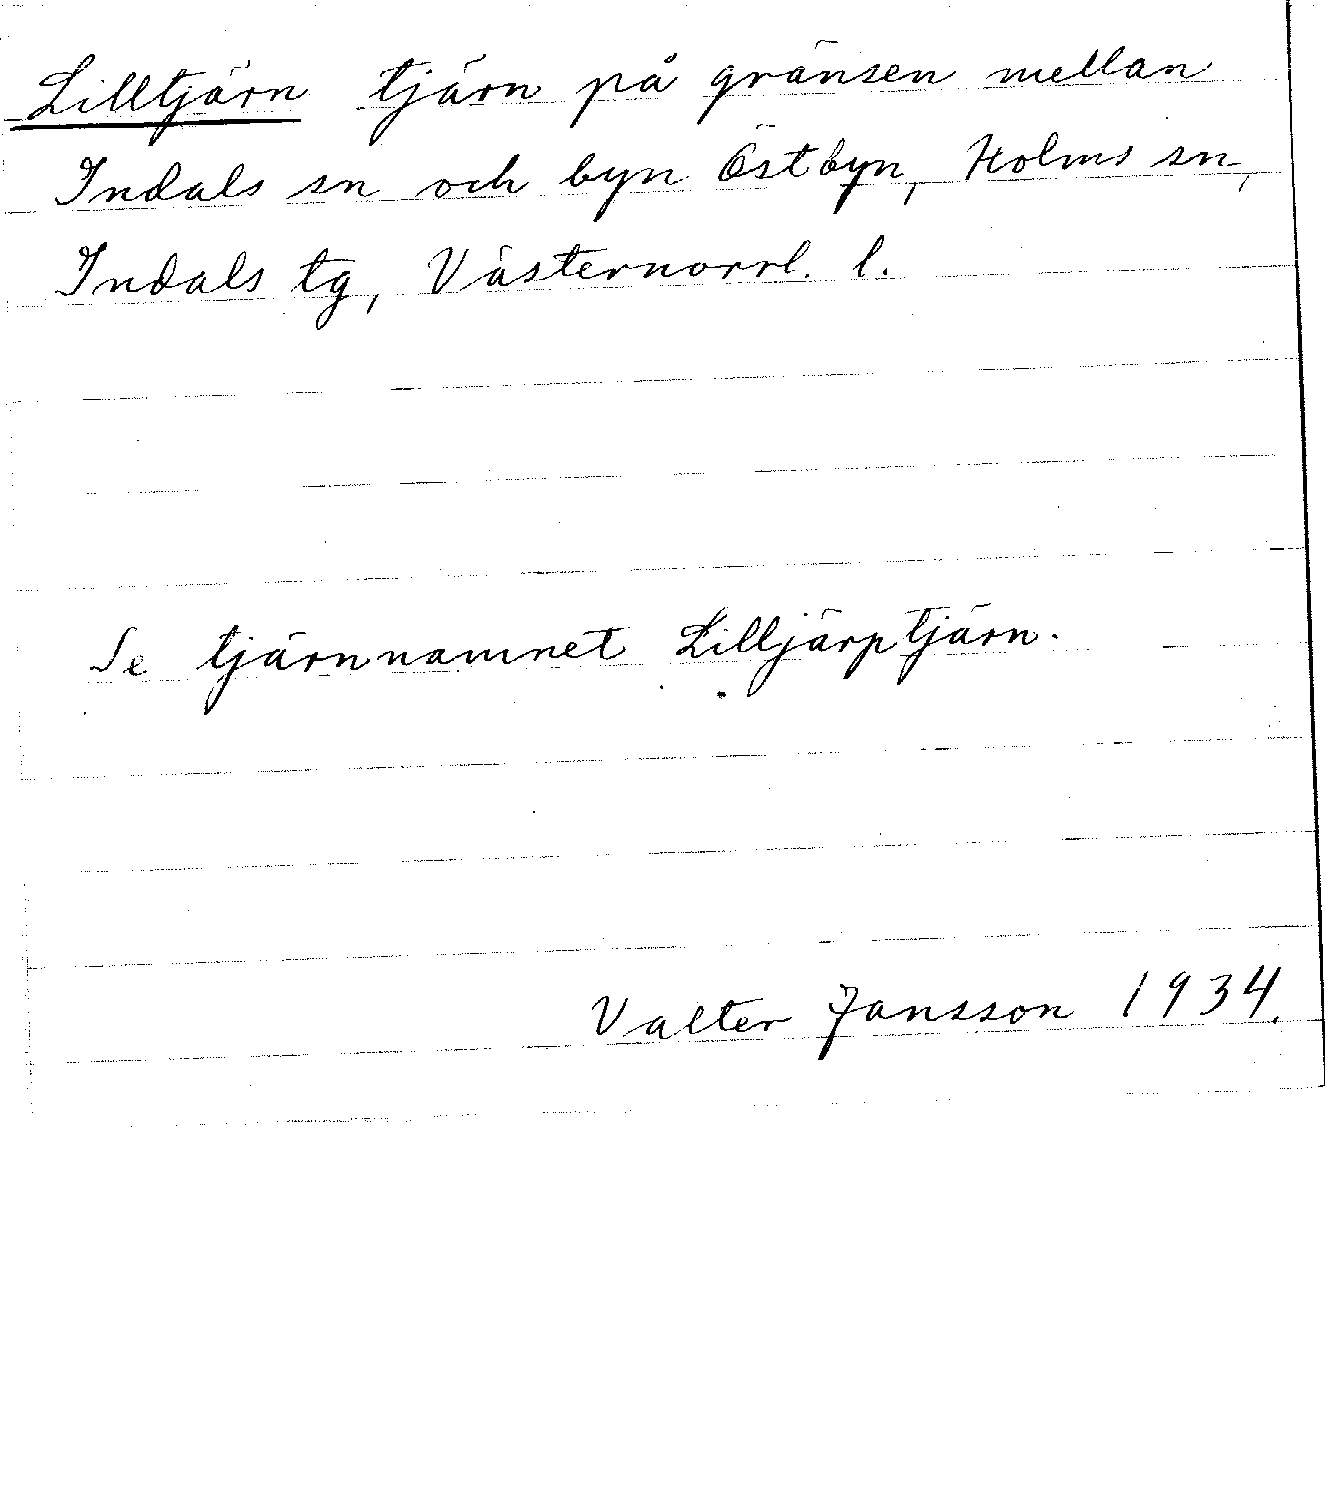 Lilltjärn tjärn på gränsen mellan
Indals sn och byn Östbyn, Holms sn,
Indals tg, Västernorrl. l.
Se tjärnnamnet Lilljärptjärn.
Valter Jansson 1934.